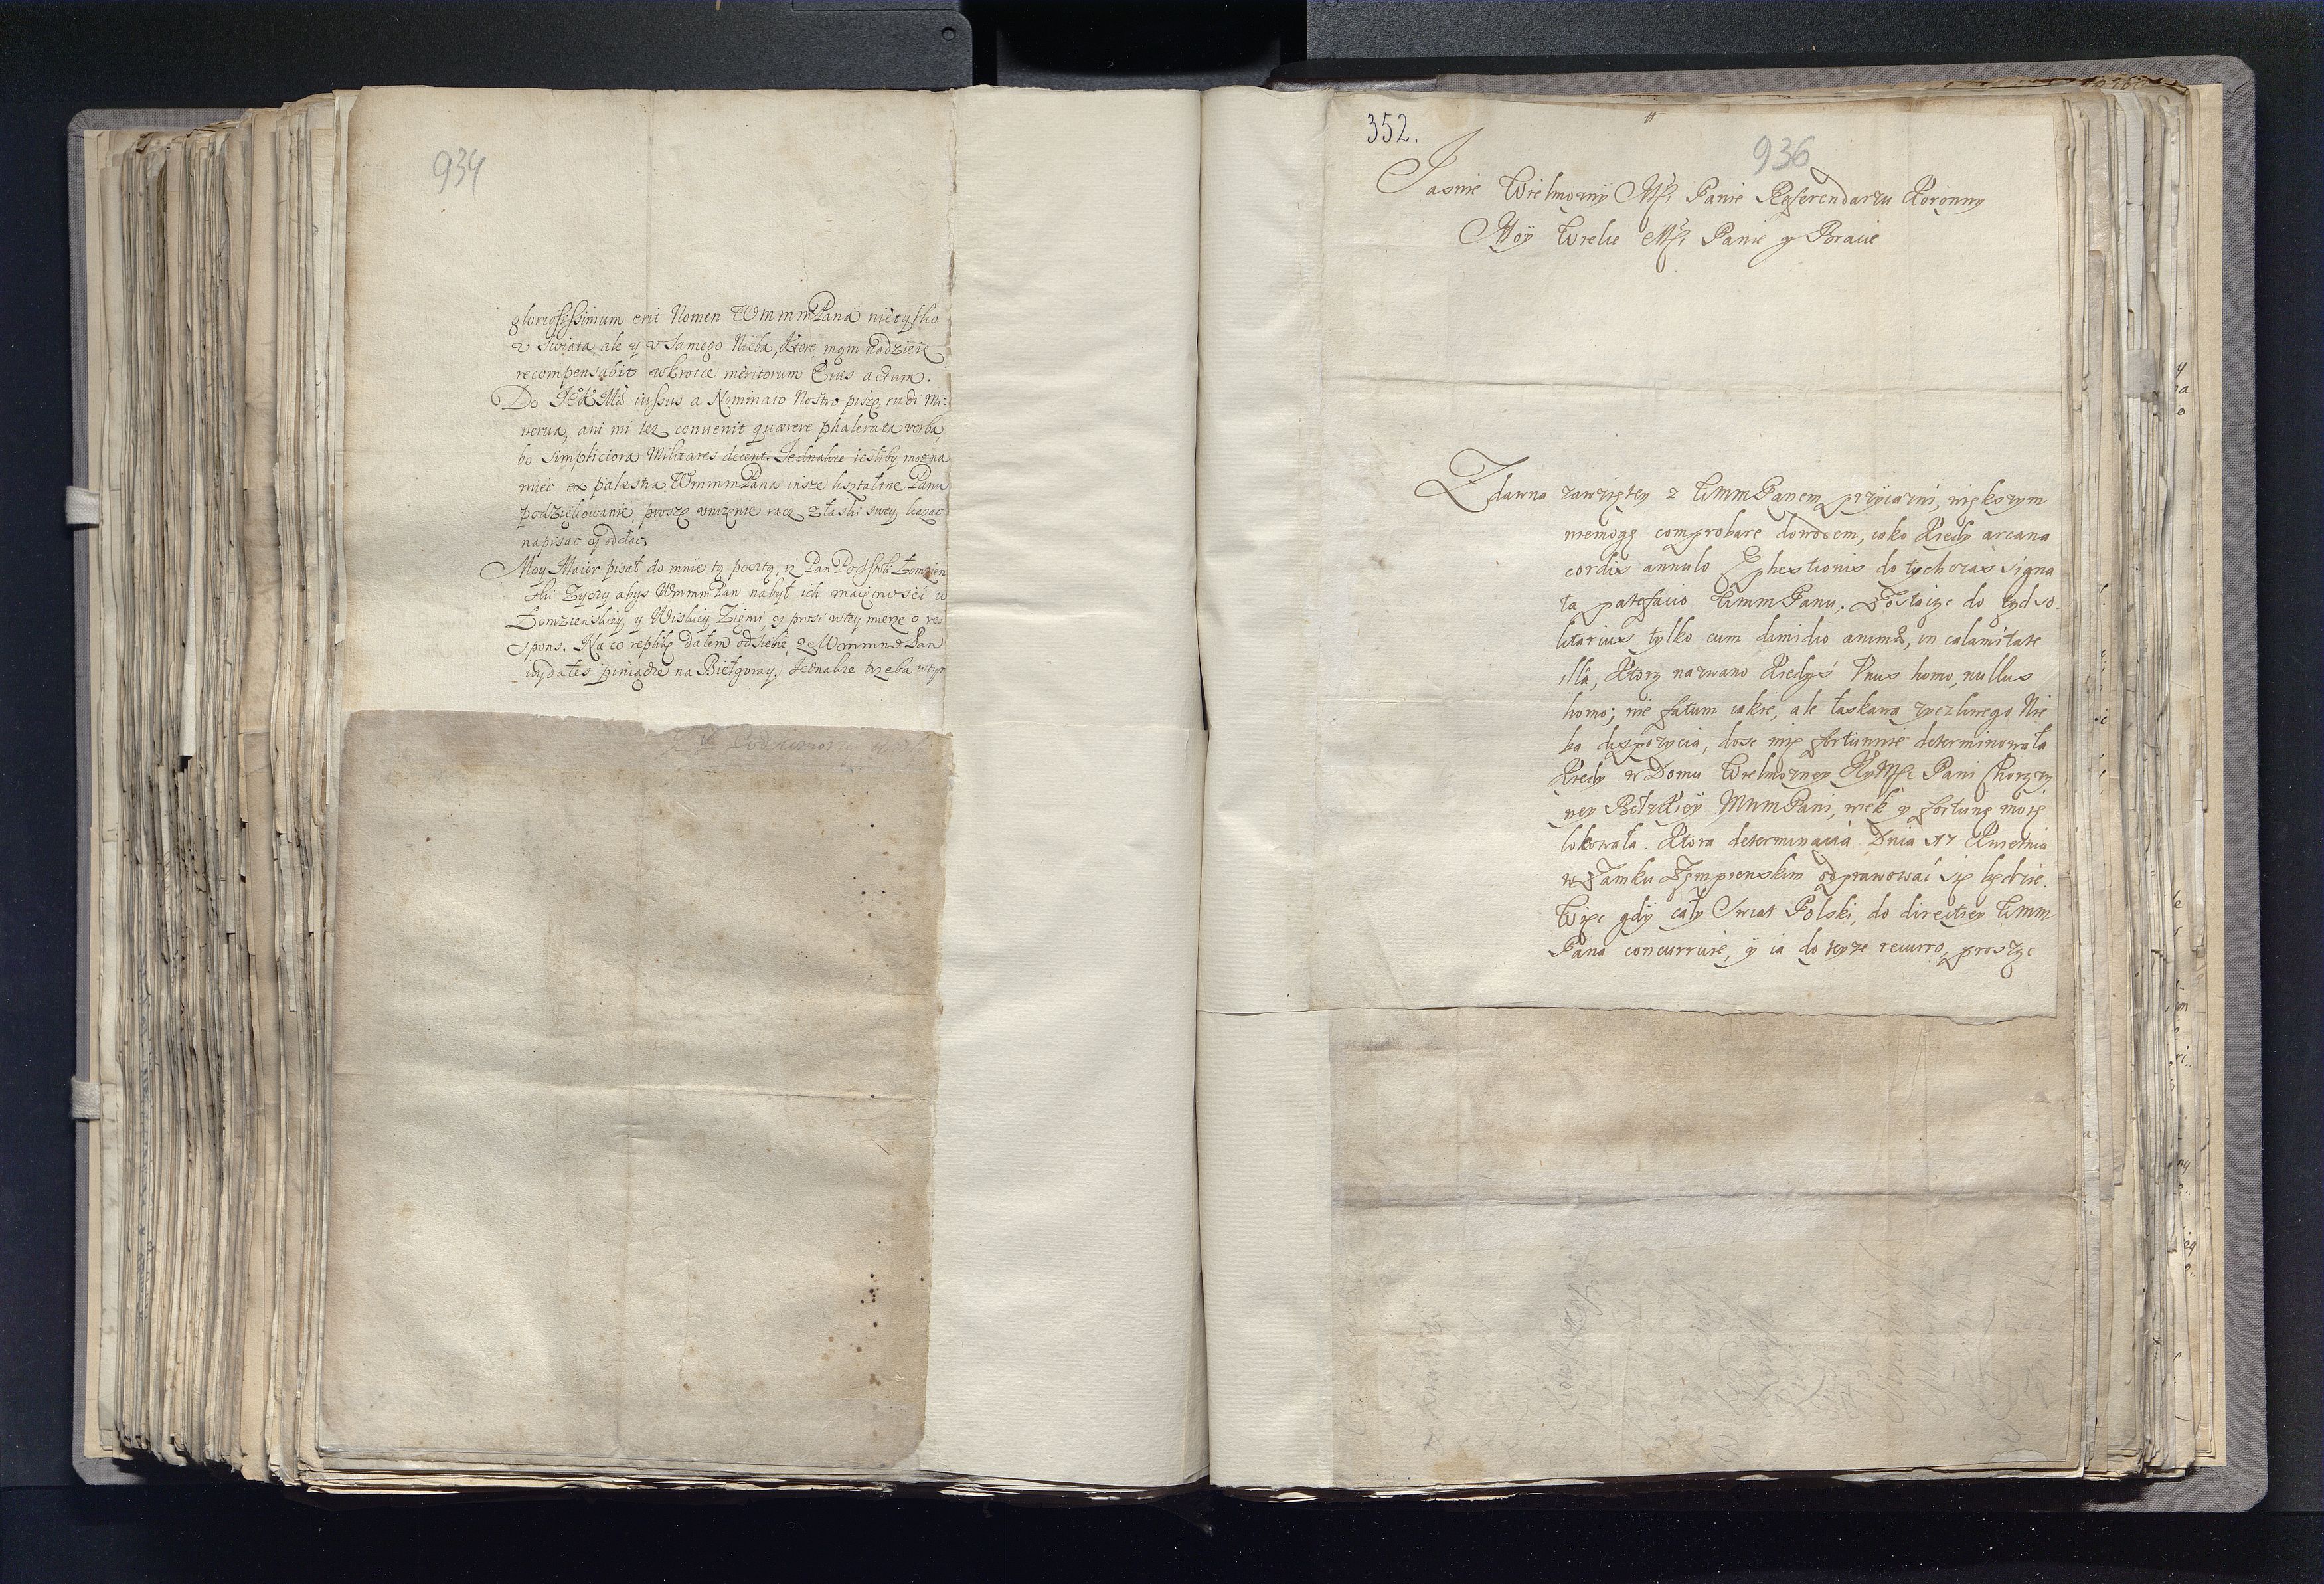 934
gloriosissimum erit Nomen WmmmPana nietylko
v swiata, ale y v samego Nieba, ktore mąm nadzieię
recompensabit wkrotce meritorum Eius actum.
Do JeKMci iussus a Nominato Nostro piszę, rudi Mi-
nerva, ani mi też convenit quærere phalerata verba,
bo simpliciora Militares decent. Jednakze iesliby mozna
mieć ex palestra WmmmPana insze ksztaltne Panu
podziękowanie, proszę vnizenie racz z łaski swey kazac
napisac y oddac.
Moy Maior pisał do mnie tą pocztą, iz Pan Podstoli Łomzien
ski zyczy abys WmmmPan nabył ich maiętnosci w
Łomzienskiey, y Wiskiey Ziemi, y prosi wtey mierze o res
pons. Na co replikę dałem odsiebie, ze WmmmPan
wydałes piniądze na Biełgoray, Jednakze trzeba uczyn
352.
936
Jasnie Wielmozny Mći Panie Referendarzu Koronny
Moy Wielce Mći Panie y Bracie
Zdawna zawziętey z WmmPanem przyiazni, większym
niemogę comprobare dowodem, iako kiedy arcana
cordis annulo Ephestionis do tychczas signa
ta patefacio WmmPanu. Zostaiąc do tąd so-
litarius tylko cum dimidio animæ, in calamitate
illa, ktorą nazwano kiedys Vnus homo, nullus
homo; nie fatum iakie, ale łaskawa zyczliwego Nie
ba dispozycia, dosc mię fortunnie determinowała
kiedy w Domu Wielmozney Jey Mći Pani Chorązy
ney Bełzkiey MmmPani, wiek y fortunę moię
lokowała. Ktora determinacia Dnia 17 Kwietnia
w Zamku Zęmprenskim odprawowac się będzie.
Więc gdy cały Swiat Polski, do direktiey Wmm
Pana concurruie, y ia do teyze recurro, prosząc